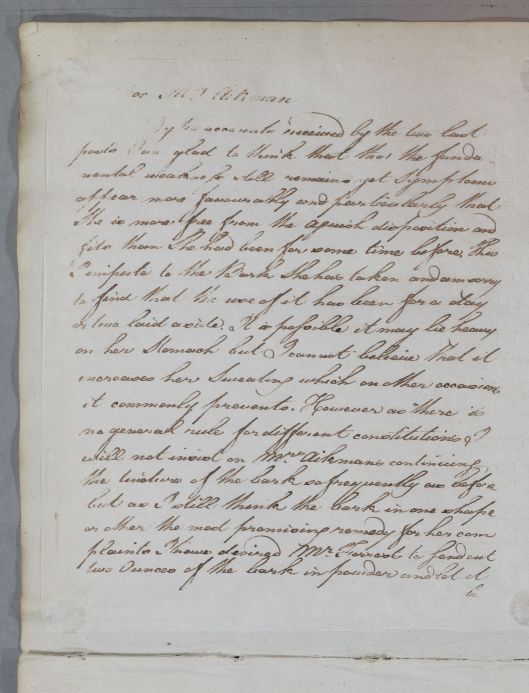 For Mrs Aikman
By the accounts received by the two last
posts I am glad to think that tho' the funda-
mental weakness still remains yet Symptoms
appear more favourably and particularly that
She is more free from the aguish disposition and
fits than She had been for some time before. This
I impute to the Bark She has taken and am sorry
to find that the use of it has been for a day
or two laid aside. It is possible it may be heavy
on her Stomach but I cannot believe that it
increases her Sweating which on other occasions
it commonly prevents. However as there is
no general rule for different constitutions I
will not insist on Mrs Aikmans continuing
the tincture of the bark so frequently as before
but as I still think the bark in one shape
or other the most promising remedy for her com
plaints I have desired Mr. Forrest to send out
two Ounces of the bark in powder and let it
be